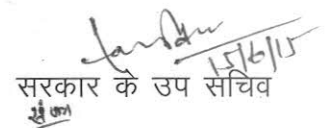 15/6/15
सरकार के उप सचिव